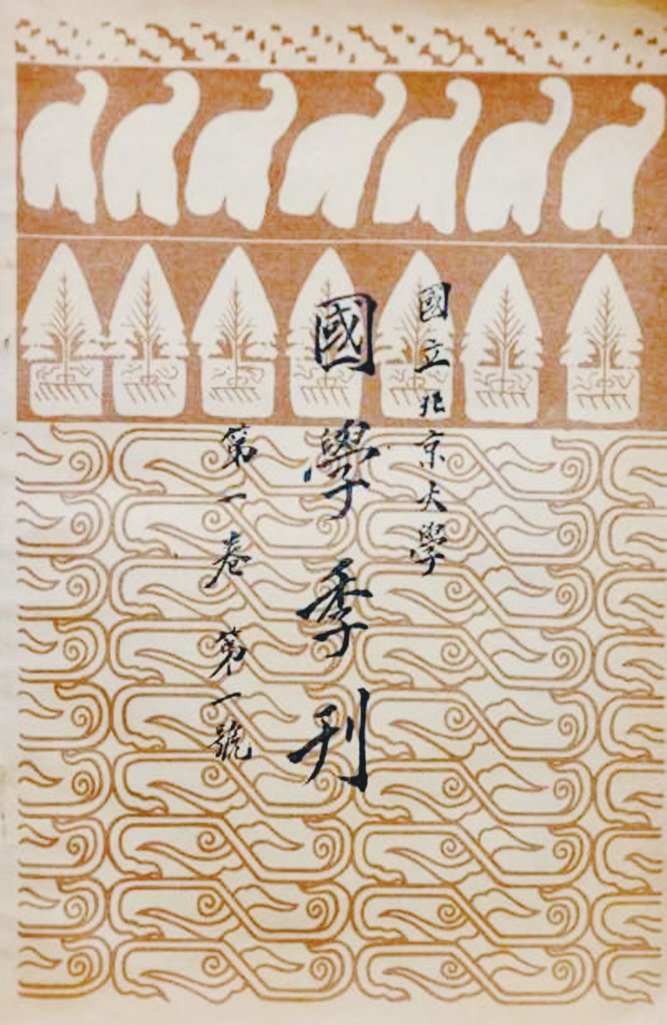 國立北京大學
國學季刊
第一卷第一號